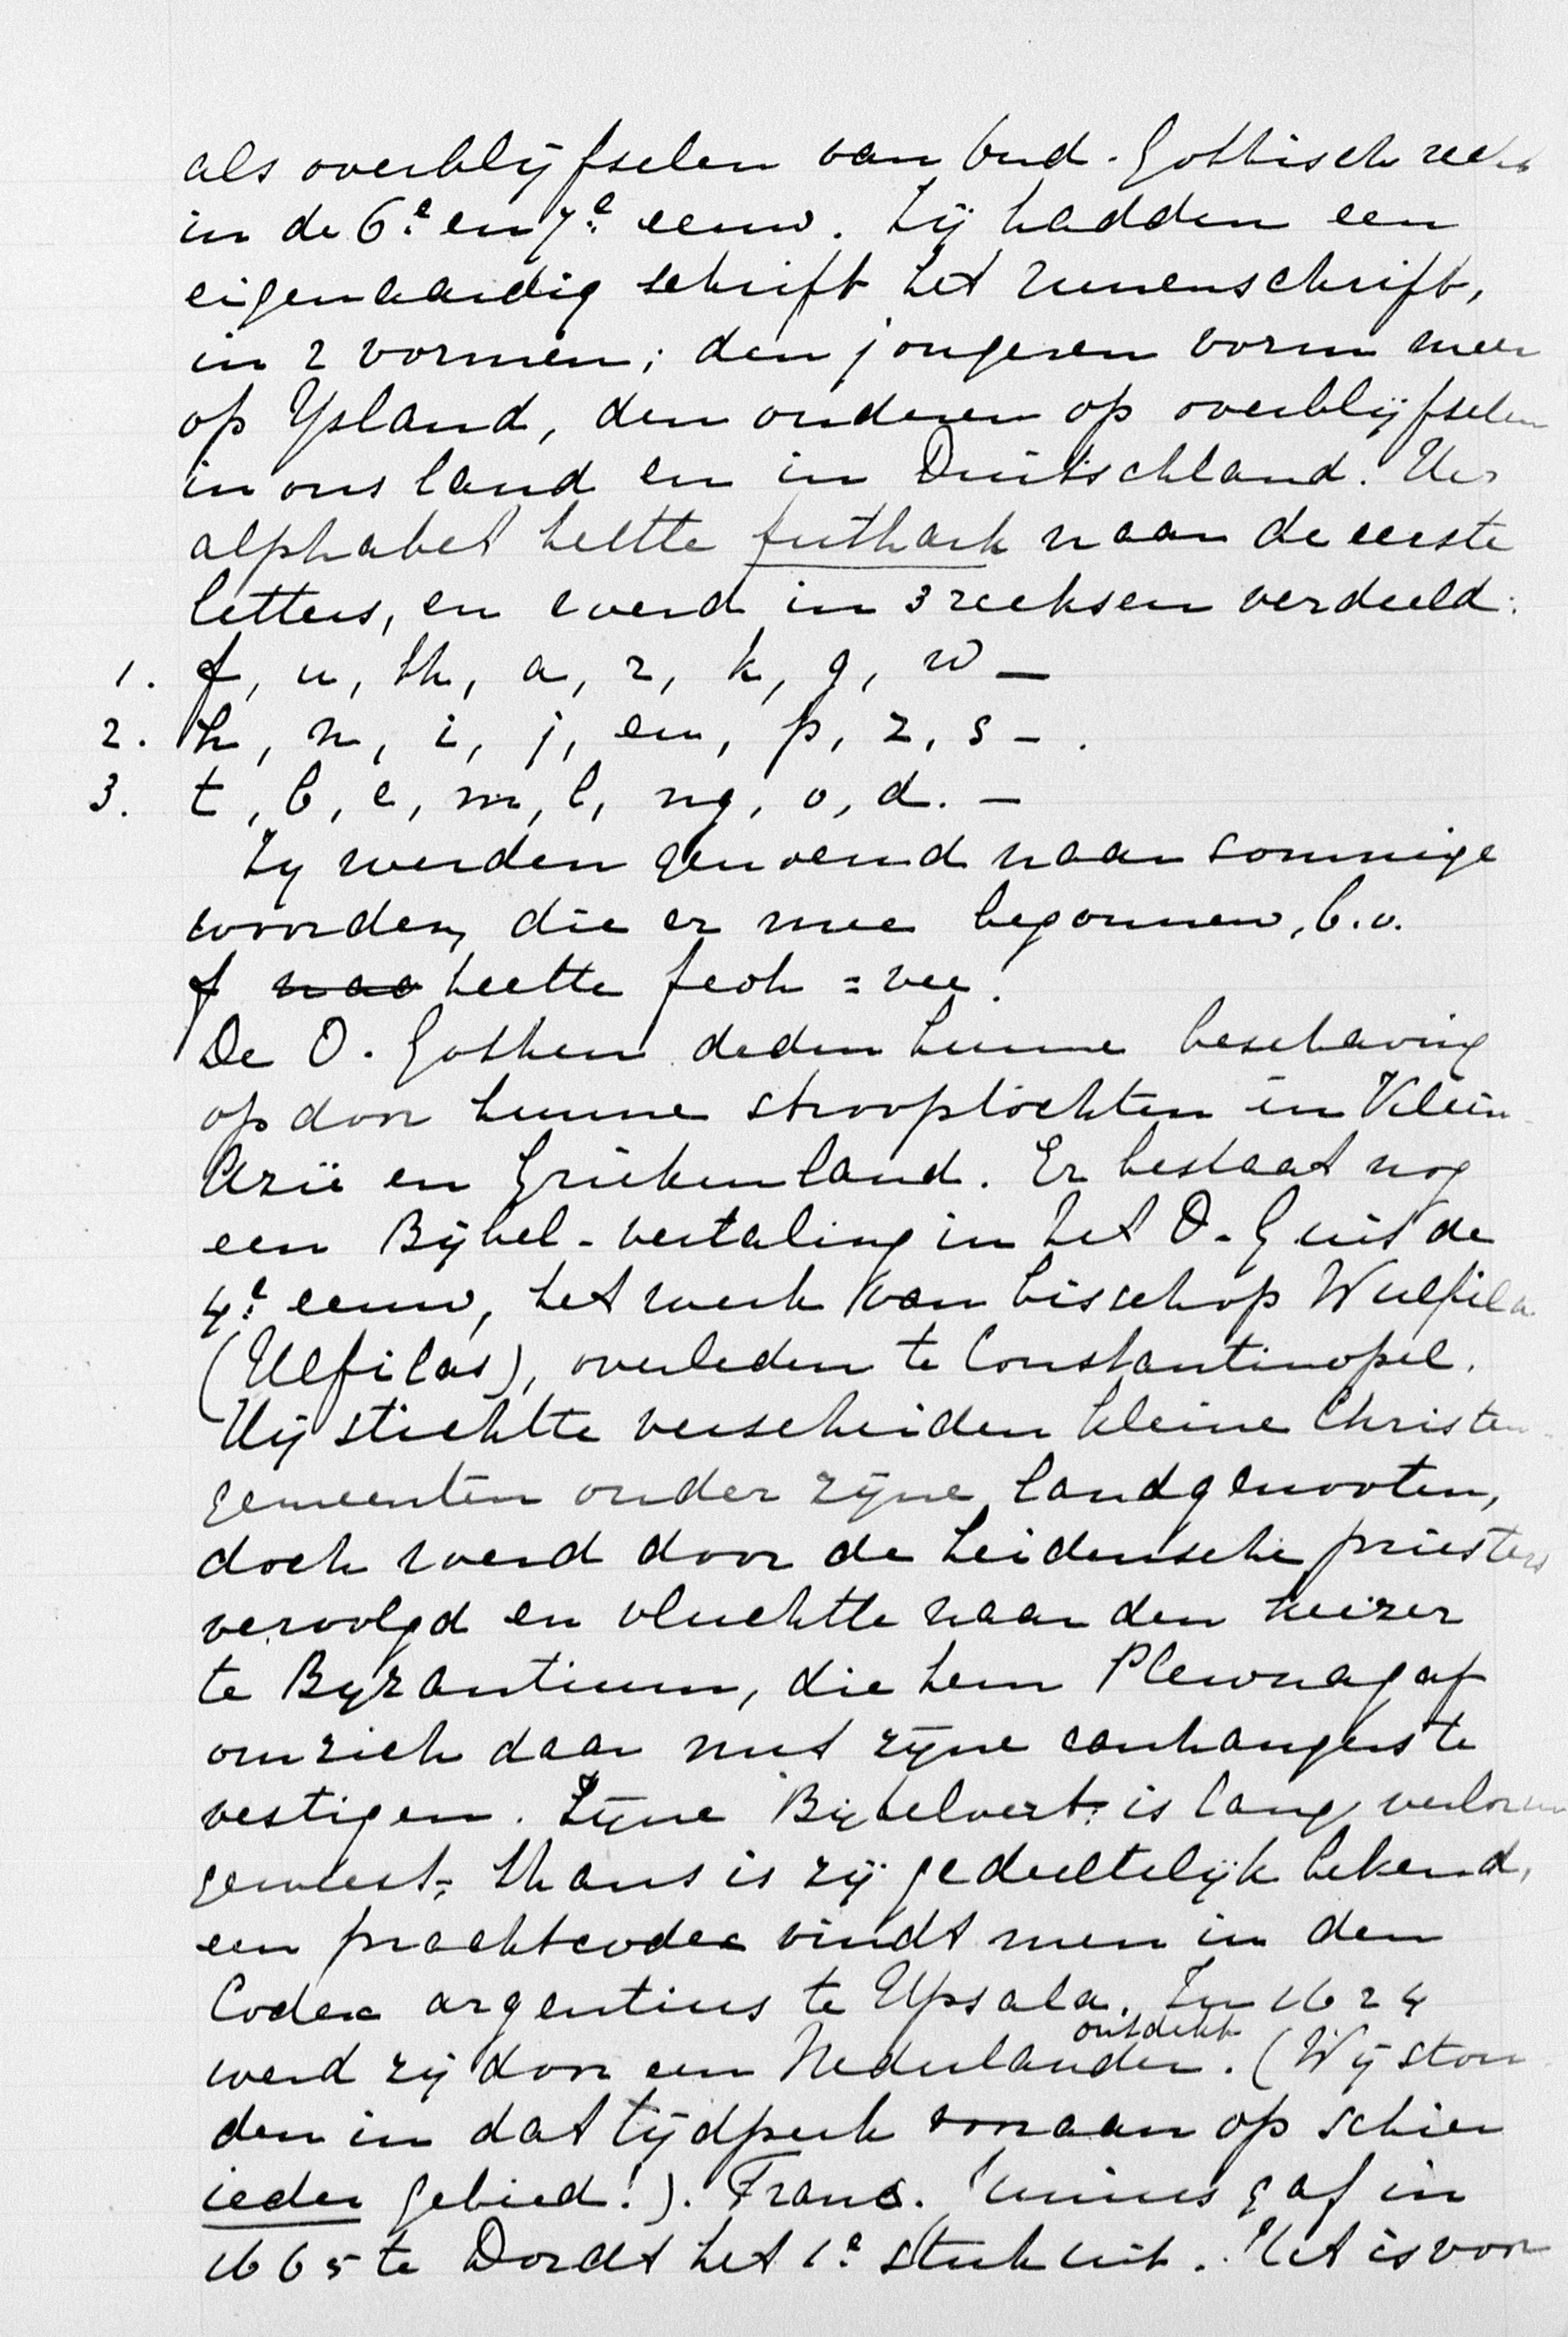 als overblijfselen van Oud-Gothisch recht
in de 6e en 7e eeuw. Zij hadden een
eigenaardig schrift het runenschrift,
in 2 vormen; den jongeren vorm meer
op Ysland, den ouderen op overblijfselen
in ons land en in Duitschland. Het
alphabet heette futhark naar de eerste
letters, en werd in 3 reeksen verdeeld:
1. f, u, th, a, r, k, g, w —
2. h, n, i, j, eu, p, z, s - .
3. t, b, e, m, l, ng, o, d. —
Zij werden genoemd naar sommige
woorden, die er mee begonnen, b.v.
f naa heette feoh = vee.
De O. Gothen deden hunne beschaving
op door hunne strooptochten in Klein-
Azië en Griekenland. Er bestaat nog
een Bijbel-vertaling in het O-G uit de
4e eeuw, het werk van bisschop Wulfila
(Ulfilas), overleden te Constantinopel.
Hij stichtte verscheiden kleine Christen-
gemeenten onder zijne landgenooten,
doch werd door de heidensche priesters
vervolgd en vluchtte naar den keizer
te Byzantium, die hem Plewna gaf
om zich daar met zijne aanhangers te
vestigen. Zijne Bijbelvert: is lang verloren
geweest; thans is zij gedeeltelijk bekend,
een prachtcodex vindt men in den
Codex argentius te Upsala. In 1624
werd zij door een Nederlander ontdekt. (Wij ston-
den in dat tijdperk vooraan op schier
ieder gebied!). Franc. Junius gaf in
1665 te Dordt het 1e stuk uit. Het is voor